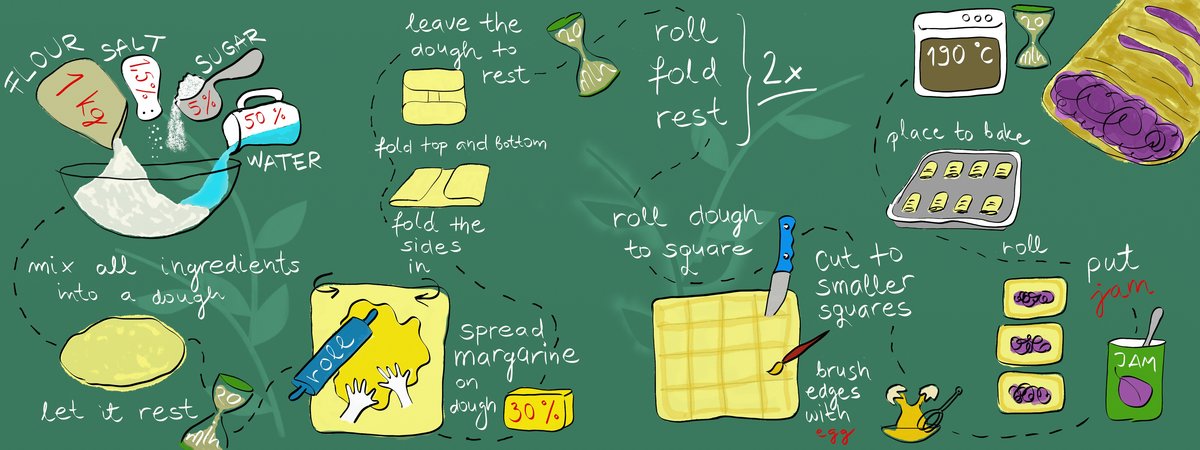 FLOUR
SALT
SUGAR
1 kg
1,5%
5%
50%
WATER
mix all ingredients
into a dough
let it rest
20
min
roll
spread
margarine
on
dough
30%
fold the
sides
in
fold top and bottom
leave the
dough to
rest
20
min
roll
fold
rest
2x
roll dough
to square
cut to
smaller
squares
brush
edges
with
egg
put
jam
JAM
roll
place to bake
190 °C
20
min